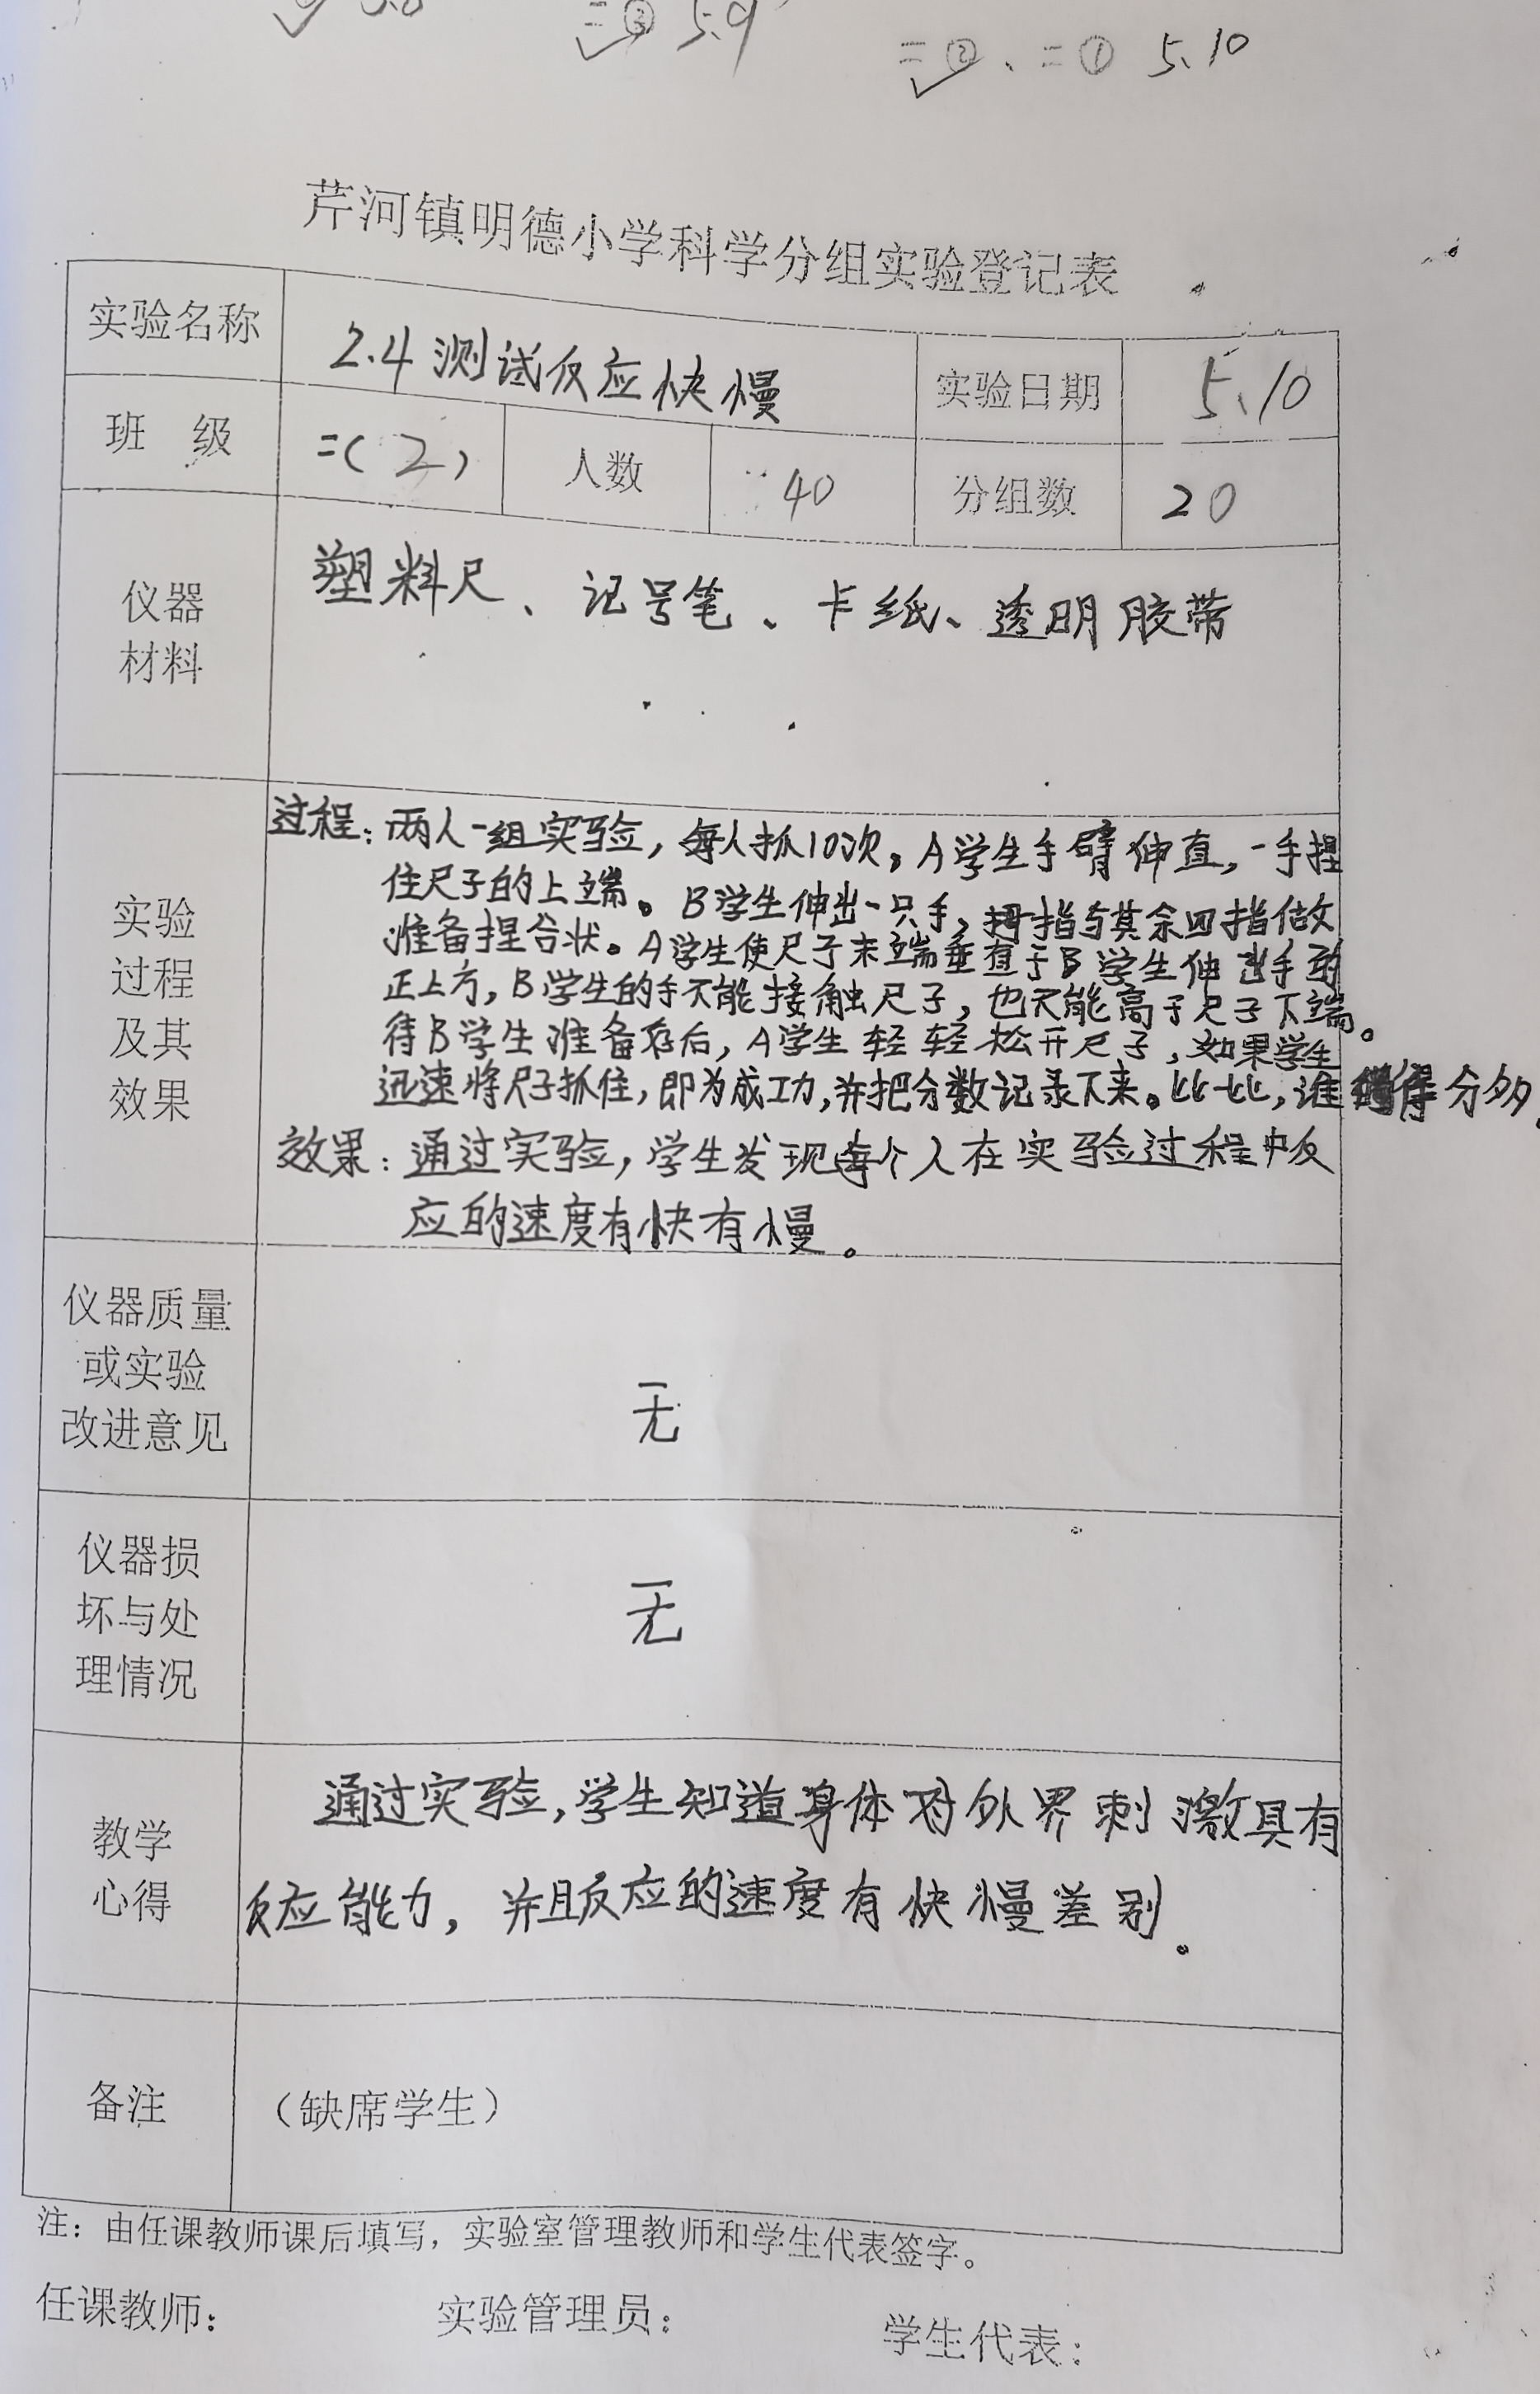 5.8
二③ 5.9
二②、二① 5.10
芹河镇明德小学科学分组实验登记表
实验名称 2.4测试反应快慢 实验日期 5.10
班 级 二(2) 人数 40 分组数 20
仪器
材料
塑料尺、记号笔、卡纸、透明胶带
实验
过程
及其
效果
过程:两人一组实验,每人抓10次。A学生手臂伸直,一手捏
住尺子的上端。B学生伸出一只手,拇指与其余四指做
准备捏合状。A学生使尺子末端垂直于B学生伸出手的
正上方,B学生的手不能接触尺子,也不能高于尺子下端。
待B学生准备好后,A学生轻轻松开尺子,如果学生
迅速将尺子抓住,即为成功,并把分数记录下来。比一比,谁得分多
效果:通过实验,学生发现每个人在实验过程中反
应的速度有快有慢。
仪器质量
或实验
改进意见
无
仪器损
坏与处
理情况
无
教学
心得
通过实验,学生知道身体对外界刺激具有
反应能力,并且反应的速度有快慢差别。
备注 (缺席学生)
注:由任课教师课后填写,实验室管理教师和学生代表签字。
任课教师: 实验管理员: 学生代表: